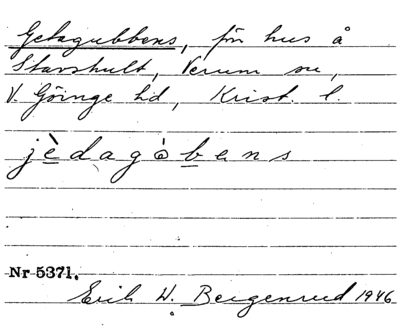 Getagubbens, för hus å
Stavshult, Verum sn,
V. Göinge hd, Krist. l.
jèdagòbens
Nr 5371.
Erik W. Bergenrud 1946